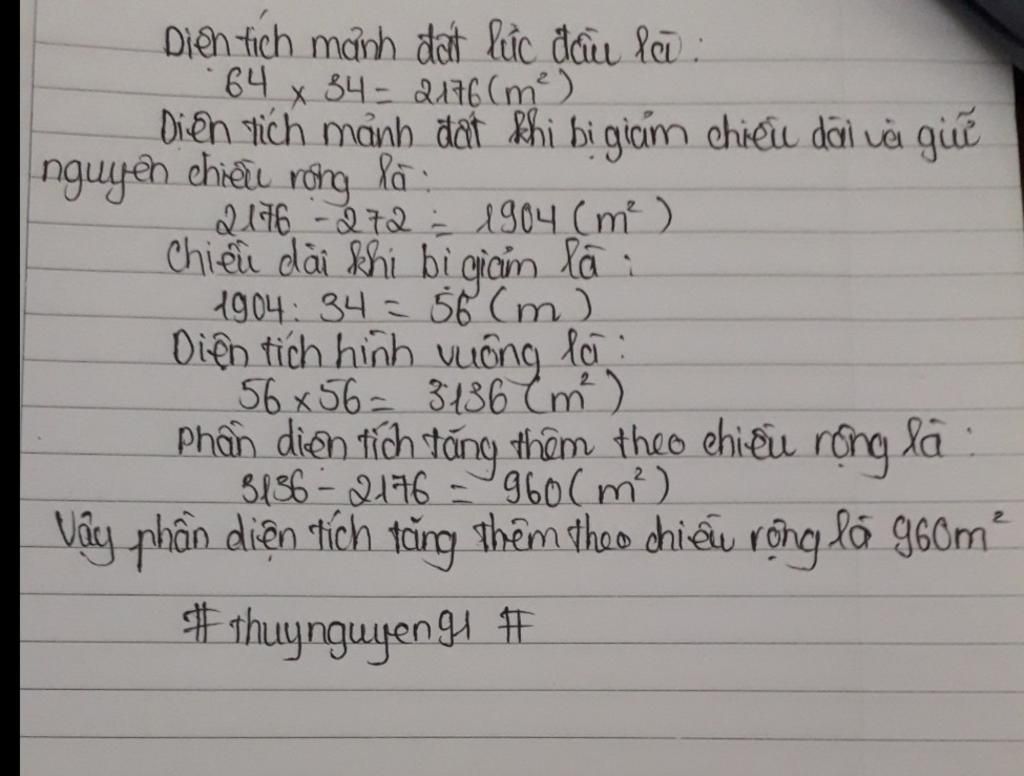 Diện tích mảnh đất lúc đầu là:
64 x 34 = 2176 (m²)
Diện tích mảnh đất khi bị giảm chiều dài và giữ
nguyên chiều rộng là:
2176 - 272 = 1904 (m²)
Chiều dài khi bị giảm là:
1904 : 34 = 56 (m)
Diện tích hình vuông là:
56 x 56 = 3136 (m²)
Phần diện tích tăng thêm theo chiều rộng là:
3136 - 2176 = 960 (m²)
Vậy phần diện tích tăng thêm theo chiều rộng là 960m²
# thuynguyen91 #